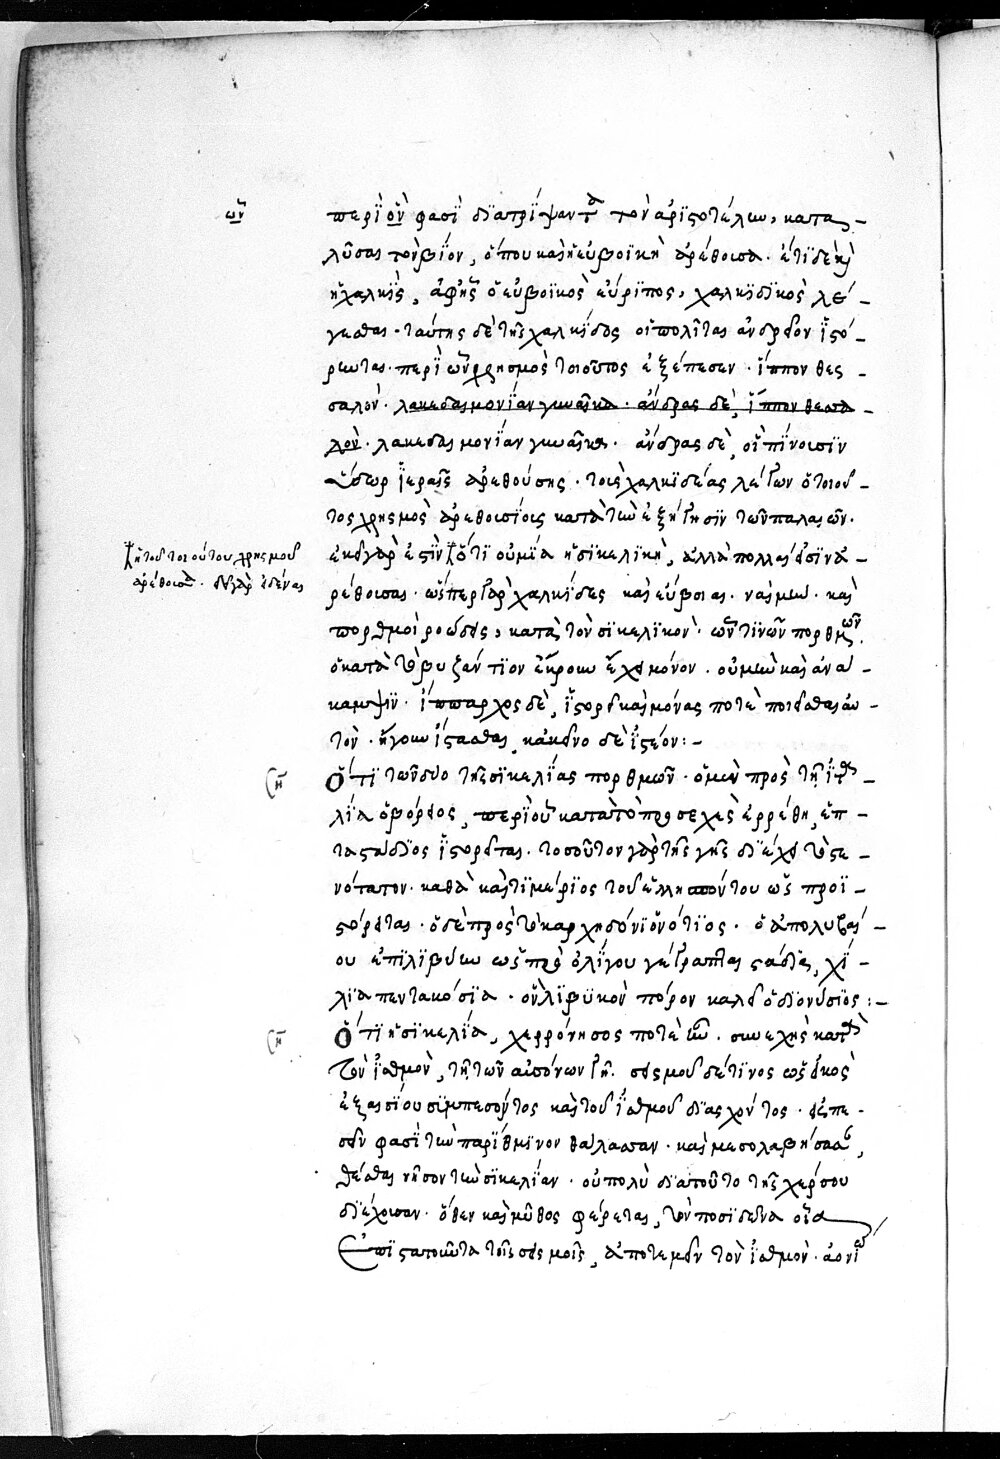 ὧν
περὶ ὃν φασὶ διατρίψαντα τὸν ἀριστοτέλην, κατα-
λῦσαι τὸν βίον, ὅπου καὶ ἡ εὐβοϊκὴ ἀρέθουσα. ἔτι δὲ καὶ
ἡ χαλκὶς, ἀφ' ἧς ὁ εὐβοϊκὸς εὔριπος, χαλκιδικὸς λέ-
γεσθαι. ταύτης δὲ τῆς χαλκίδος οἱ πολῖται ἀνδρεῖοι ἱστό-
ρωνται. περὶ ὧν χρησμὸς τοιοῦτος ἐξέπεσεν. ἵππον θεσ-
σαλόν. λακεδαιμονίαν γυναῖκα. ἄνδρας δὲ, ἵππον θεσσα-
λόν. λακεδαιμονίαν γυναῖκα. ἄνδρας δὲ, οἳ πίνουσιν
ὕδωρ ἱερῆς ἀρεθούσης. τοὺς χαλκιδέας λέγων ὁ τοιοῦ-
τος χρησμὸς ἀρεθουσίοις κατὰ τὴν ἐξήγησιν τῶν παλαιῶν.
ἐκεῖ γάρ ἐστὶν ὅτι οὐ μία ἡ σικελικὴ, ἀλλὰ πολλαί εἰσιν ἀ-
ἡ τοῦ τοιούτου χρησμοῦ
ἀρέθουσα. δεῖ γὰρ εἰδέναι
ρέθουσαι. ὥσπερ γὰρ χαλκίδες καὶ εὔβοιαι. ναὶ μὴν καὶ
πορθμοὶ ῥοώδεις, κατὰ τὸν σικελικόν. ὧν τινῶν πορθμῶν.
ὁ κατὰ τὸ βυζάντιον ἔκρουν ἔχει μόνον. οὐ μὴν καὶ ἀνά-
καμψιν. ἵππαρχος δὲ, ἱστορεῖ καὶ μονάς ποτὲ ποιεῖσθαι αὐ-
τόν. ἤγουν ἵστασθαι, κἀκεῖνο δὲ ἰστέον:-
Ὅτι τῶν δύο τῆς σικελίας πορθμῶν. ὁ μὲν πρὸς τῇ ἰτα-
λίᾳ ὁ βόρειος, περὶ οὗ κατὰ τὸ προσεχὲς ἐρρέθη, ἑπ-
ταστάδιος ἱστορεῖται. τοσοῦτον γὰρ τῆς γῆς διέχει τὸ στε-
νότατον. καθὰ καὶ τιμαρίος τοῦ ἑλλησπόντου ὡς προϊ-
στόρηται. ὁ δὲ πρὸς τὸ καρχηδόνιον νότιος. ὁ ἀπὸ λυβαί-
ου ἐπὶ λιβύην ὡς πρὸ ὀλίγου γέγραπται στάδια, χί-
λια πεντακόσια. ὃν λιβυκὸν πόρον καλεῖ ὁ διονύσιος:-
Ὅτι ἡ σικελία, χερρόνησος ποτὲ ἦν. συνεχὴς κατὰ
τὸν ἰσθμὸν, τῇ τῶν αὐσόνων γῇ. σεισμοῦ δέ τινος ὡς εἰκὸς
ἐξαισίου συμπεσόντος καὶ τοῦ ἰσθμοῦ διασχόντος. ἐπε-
σεῖν φασὶ τὴν παρίσθμιον θάλασσαν. καὶ μεσολαβήσασαν,
θέσθαι νῆσον τὴν σικελίαν. οὐ πολὺ διὰ τοῦτο τῆς χέρσου
διέχουσαν. ὅθεν καὶ μῦθος φέρεται, τὸν ποσειδῶνα οἷα
ἐπιστατοῦντα τοῖς σεισμοῖς, ἀποτεμεῖν τὸν ἰσθμὸν. ἀονίῳ